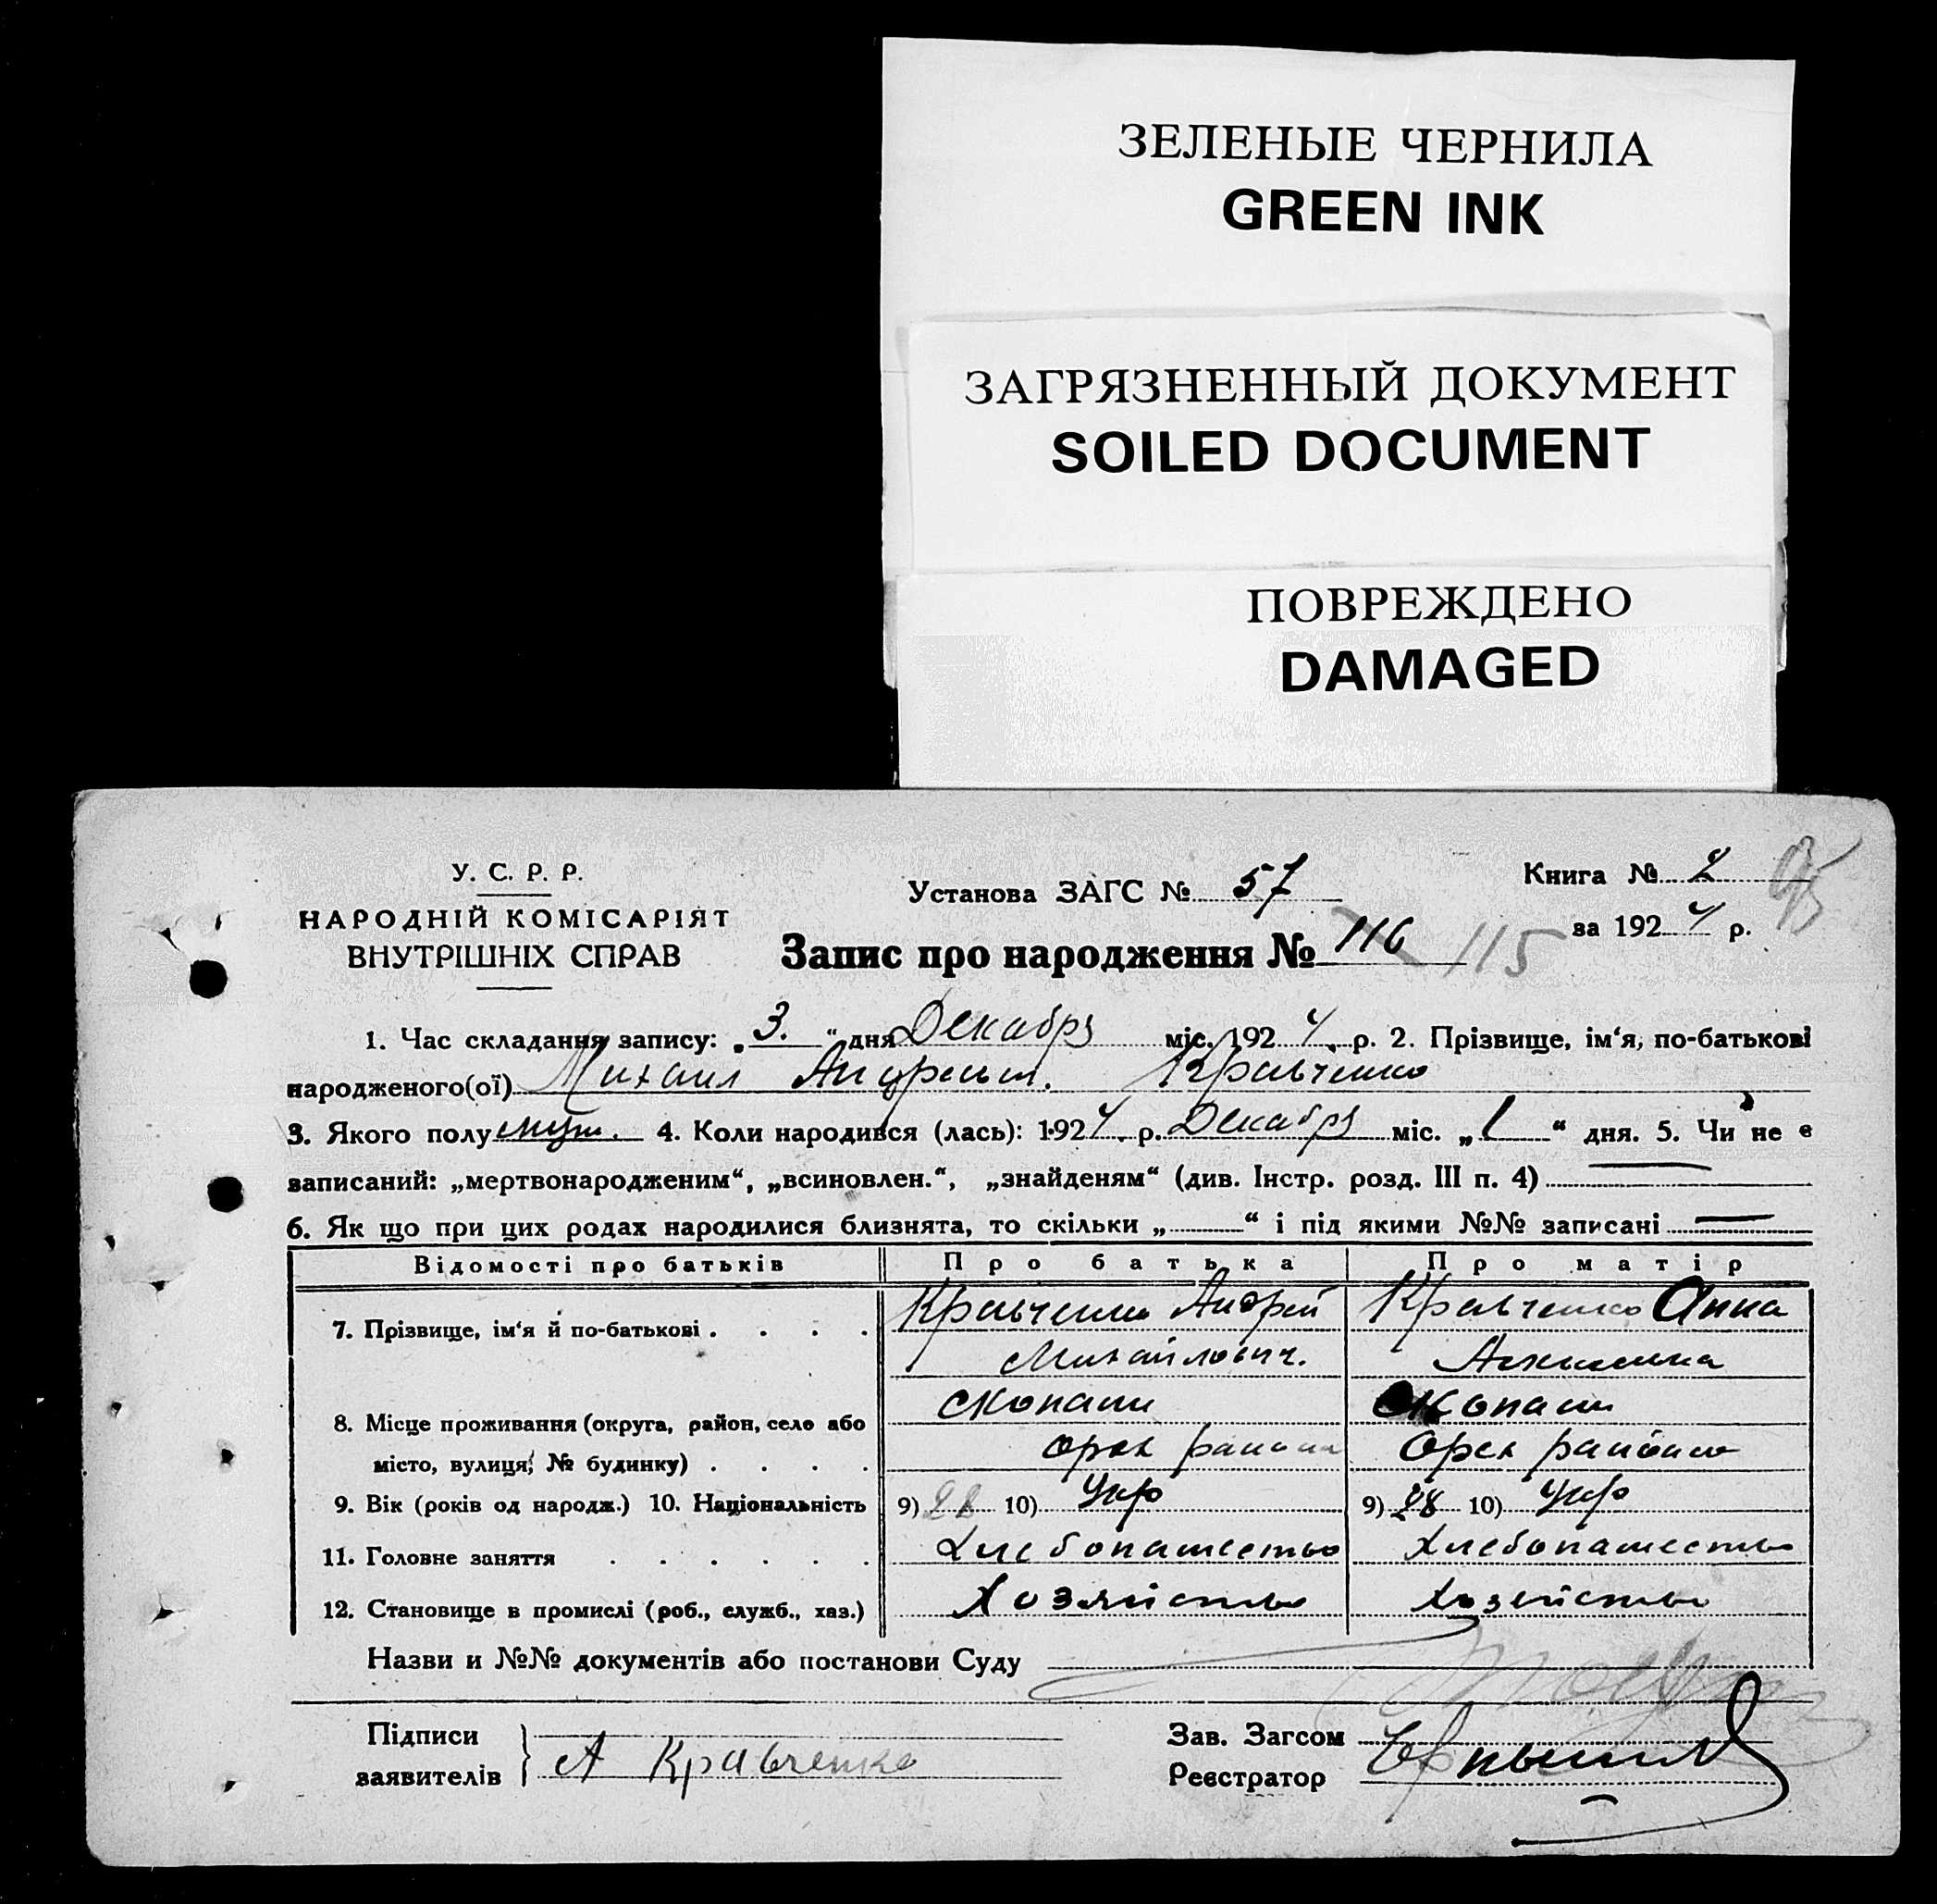 ЗЕЛЕНЫЕ ЧЕРНИЛА
GREEN INK
ЗАГРЯЗНЕННЫЙ ДОКУМЕНТ
SOILED DOCUMENT
ПОВРЕЖДЕНО
DAMAGED
У. С. Р. Р.
НАРОДНІЙ КОМІСАРІЯТ
ВНУТРІШНІХ СПРАВ
Установа ЗАГС № 57
Книга № 2 95
за 1924 р.
Запис про народження № 116 115
1. Час складання запису: „3.“ дня Декабря міс. 1924 р. 2. Прізвище, ім‘я, по-батькові
народженого(ої) Михаил Андреевич. Кравченко
3. Якого полу муж. 4. Коли народився (лась): 1924 р. Декабря міс. „1“ дня. 5. Чи не є
записаний: „мертвонародженим“, „всиновлен.“, „знайденям“ (див. Інстр. розд. III п. 4)
6. Як що при цих родах народилися близнята, то скільки „ “ і під якими №№ записані
Відомості про батьків Про батька Про матір
7. Прізвище, ім‘я й по-батькові . . . . Кравченко Андрей Кравченко Анна
Михайлович.
8. Місце проживання (округа, район, село або Скопани Скопани
місто, вулиця, № будинку) . . . . Орех района Орех района
9. Вік (років од народж.) 10. Національність 9) 28 10) Укр 9) 28 10) Укр
11. Головне заняття . . . . . . Хлебопашество Хлебопашество
12. Становище в промислі (роб., служб., хаз.) Хозяйство Хозейство
Назви и №№ документів або постанови Суду
Підписи
заявителів } А Кравченко
Зав. Загсом
Реєстратор